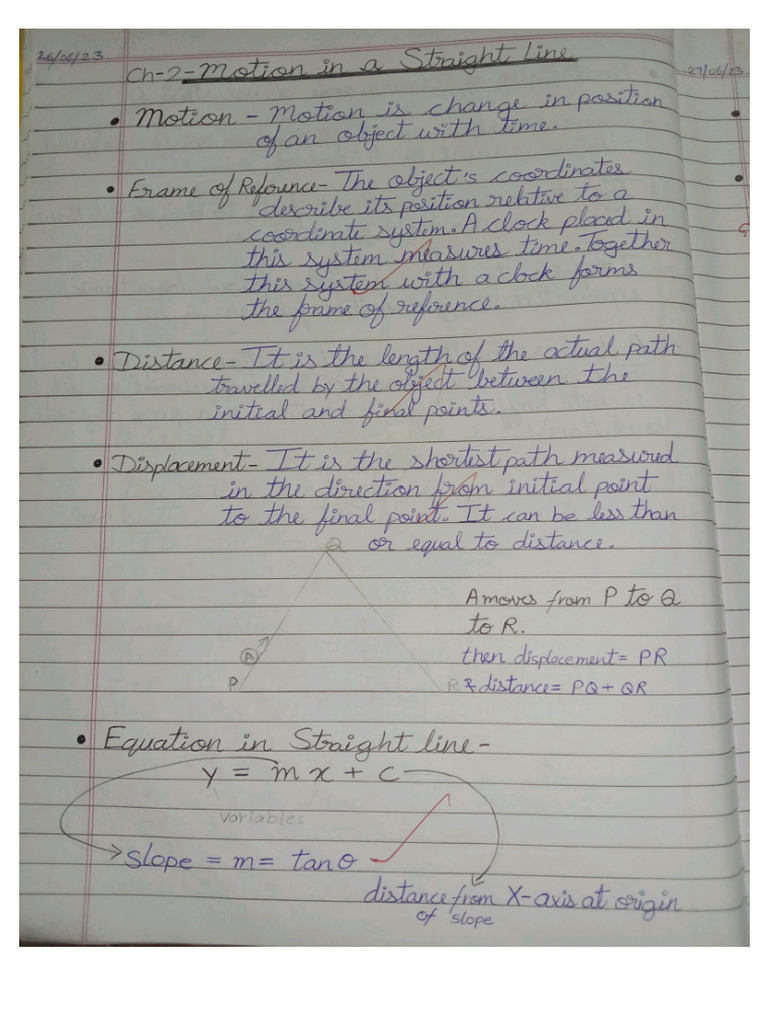 26/06/23
Ch-2-Motion in a Straight Line
27/06/23
• Motion - Motion is change in position
of an object with time.
• Frame of Reference- The object's coordinates
describe its position relative to a
coordinate system. A clock placed in
this system measures time. Together
this system with a clock forms
the frame of reference.
• Distance- It is the length of the actual path
travelled by the object between the
initial and final points.
• Displacement- It is the shortest path measured
in the direction from initial point
to the final point. It can be less than
or equal to distance.
Q
A moves from P to Q
to R.
A
then displacement= PR
P
R
& distance= PQ+ QR
• Equation in Straight line-
y = mx + c
Variables
slope = m = tanθ
distance from X-axis at origin
of slope